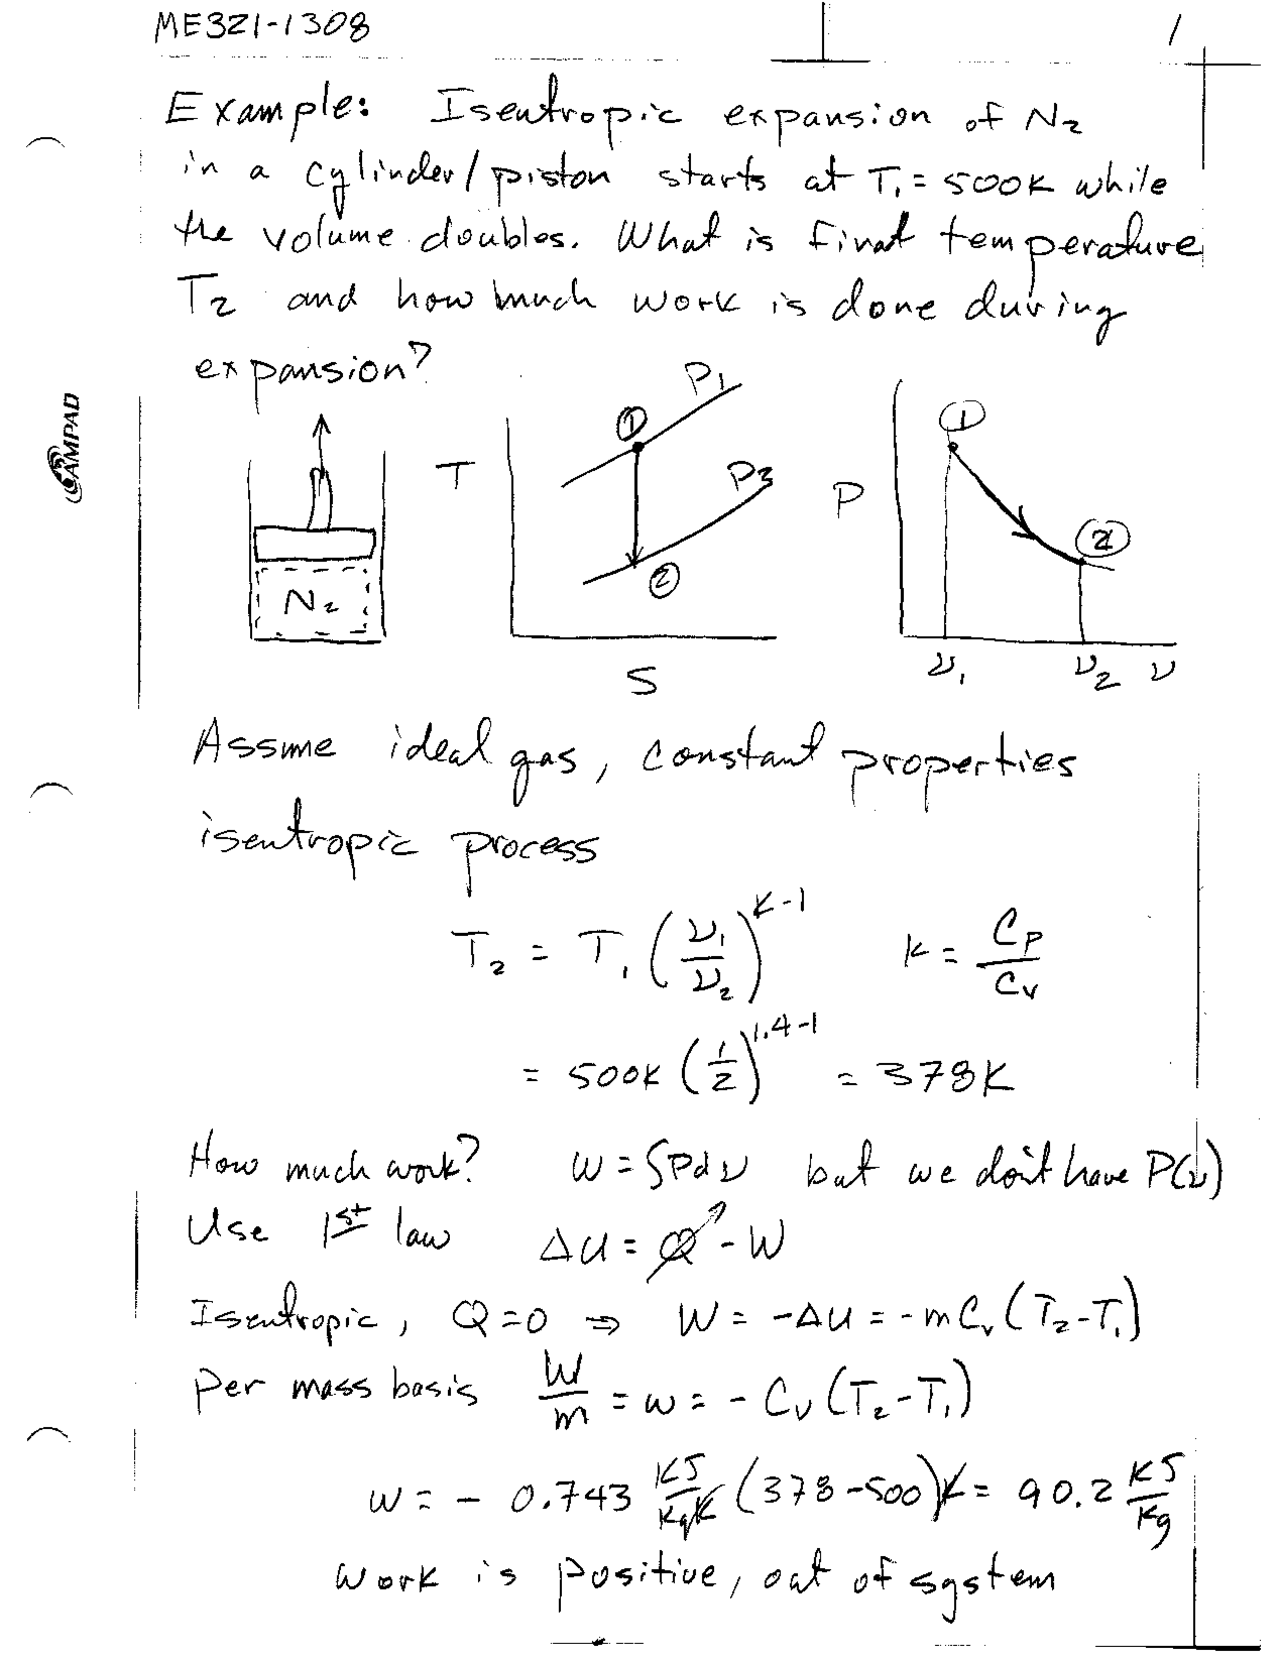 ME321-1308
1
Example: Isentropic expansion of N₂
in a cylinder/piston starts at T₁ = 500K while
the volume doubles. What is final temperature
T₂ and how much work is done during
expansion?
AMPAD
T
P₁
①
P₂
②
S
N₂
P
①
②
ν₁
ν₂
ν
Assume ideal gas, constant properties
isentropic process
T₂ = T₁ (ν₁/ν₂)^(K-1) K = Cp/Cv
= 500K (1/2)^(1.4-1) = 378K
How much work? W = ∫Pdν but we don't have P(ν)
Use 1st law ΔU = Q - W
Isentropic, Q=0 ⇒ W = -ΔU = -mCv(T₂-T₁)
Per mass basis W/m = w = -Cv(T₂-T₁)
w = - 0.743 KJ/KgK (378-500)K = 90.2 KJ/Kg
work is positive, out of system